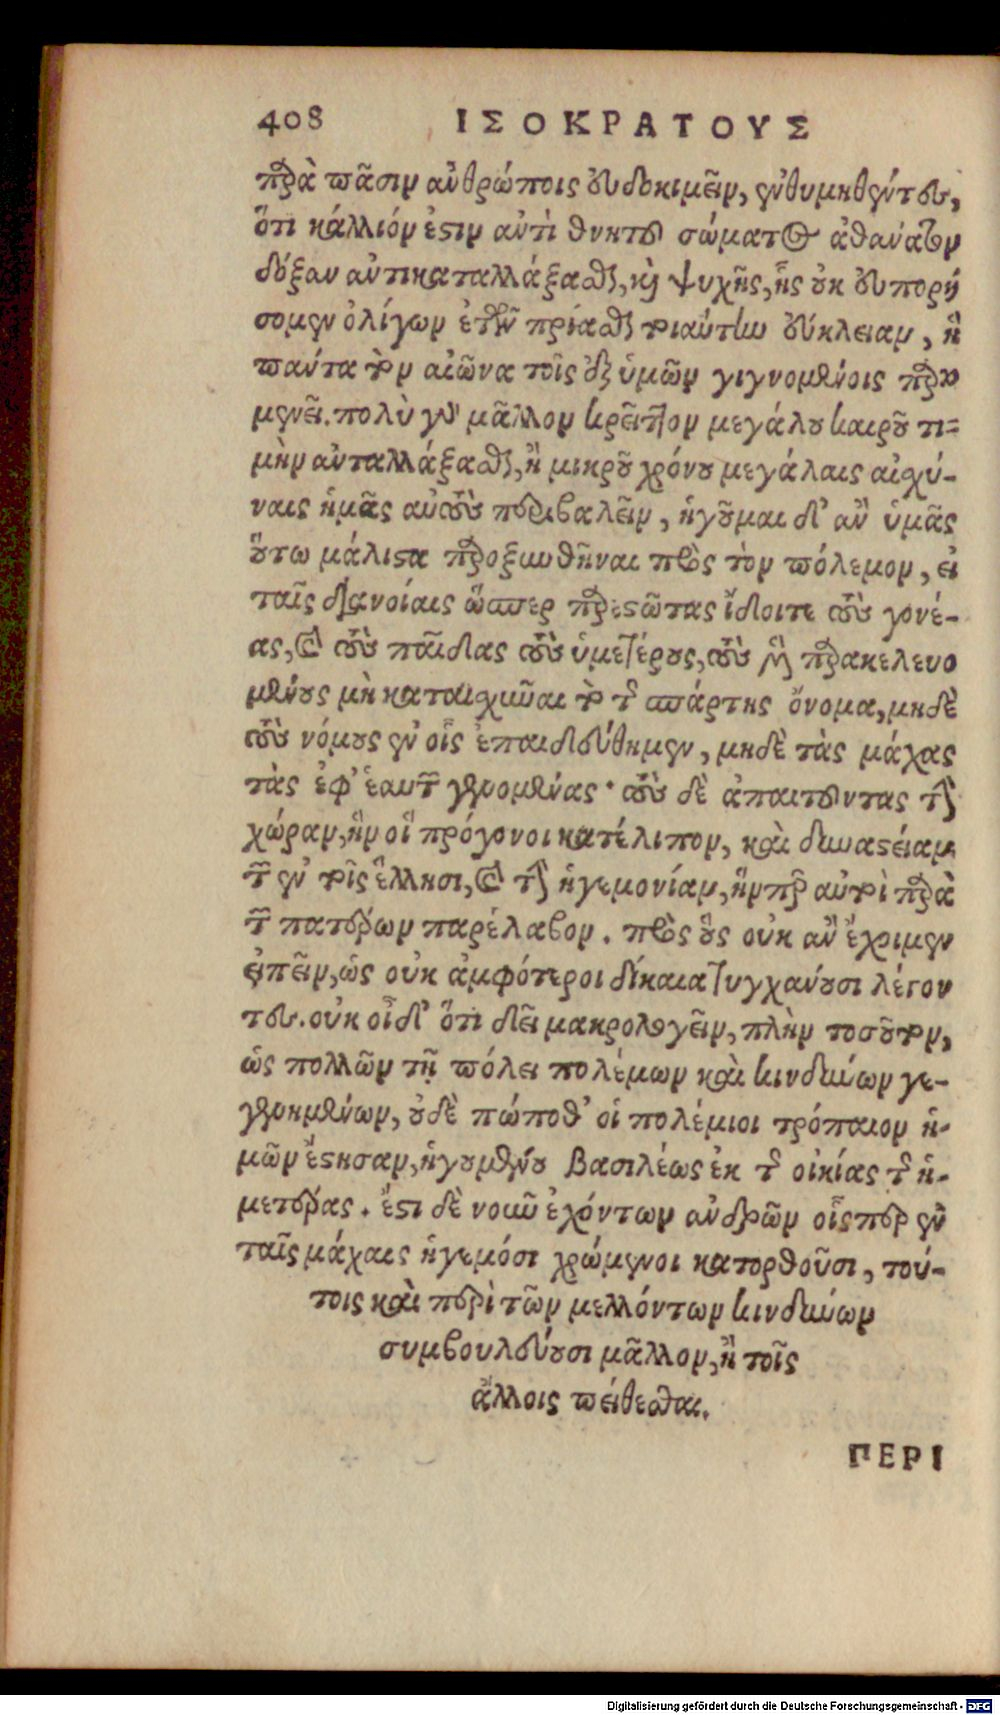 408 ΙΣΟΚΡΑΤΟΥΣ
παρὰ πᾶσιν ἀνθρώποις εὐδοκιμεῖν, ἐνθυμηθέντες,
ὅτι κάλλιόν ἐστιν ἀντὶ θνητοῦ σώματος ἀθάνατον
δόξαν ἀντικαταλλάξασθαι, καὶ ψυχῆς, ἧς οὐκ εὐπορή
σομεν ὀλίγων ἐτῶν πρίασθαι τοιαύτην εὔκλειαν, ἣ
πάντα τὸν αἰῶνα τοῖς ἐξ ὑμῶν γιγνομένοις παρα
μενεῖ. πολὺ γὰρ μᾶλλον κρεῖττον μεγάλου καιροῦ τι-
μὴν ἀνταλλάξασθαι, ἢ μικροῦ χρόνου μεγάλαις αἰσχύ-
ναις ἡμᾶς αὐτοὺς περιβαλεῖν, ἡγοῦμαι δ' ἂν ὑμᾶς
οὕτω μάλιστα παροξυνθῆναι πρὸς τὸν πόλεμον, εἰ
ταῖς διανοίαις ὥσπερ παρεστῶτας ἴδοιτε τοὺς γονέ-
ας, καὶ τοὺς παῖδας τοὺς ὑμετέρους, τοὺς μὲν παρακελευο
μένους μὴ καταισχῦναι τὸ τῆς σπάρτης ὄνομα, μηδὲ
τοὺς νόμους ἐν οἷς ἐπαιδεύθημεν, μηδὲ τὰς μάχας
τὰς ἐφ' ἑαυτῶν γενομένας· τοὺς δὲ ἀπαιτοῦντας τὴν
χώραν, ἣν οἱ πρόγονοι κατέλιπον, καὶ δυναστείαν
τὴν ἐν τοῖς ἕλλησι, καὶ τὴν ἡγεμονίαν, ἥνπερ αὐτοὶ παρὰ
τῶν πατέρων παρέλαβον. πρὸς οὓς οὐκ ἂν ἔχοιμεν
εἰπεῖν, ὡς οὐκ ἀμφότεροι δίκαια τυγχάνουσι λέγον
τες. οὐκ οἶδ' ὅτι δεῖ μακρολογεῖν, πλὴν τοσοῦτον,
ὡς πολλῶν τῇ πόλει πολέμων καὶ κινδύνων γε-
γενημένων, οὐδὲ πώποθ' οἱ πολέμιοι τρόπαιον ἡ-
μῶν ἔστησαν, ἡγουμένου βασιλέως ἐκ τῆς οἰκίας τῆς ἡ-
μετέρας. ἔστι δὲ νοῦν ἐχόντων ἀνδρῶν οἷσπερ ἐν
ταῖς μάχαις ἡγεμόσι χρώμενοι κατορθοῦσι, τού-
τοις καὶ περὶ τῶν μελλόντων κινδύνων
συμβουλεύουσι μᾶλλον, ἢ τοῖς
ἄλλοις πείθεσθαι.
ΠΕΡΙ
Digitalisierung gefördert durch die Deutsche Forschungsgemeinschaft - DFG